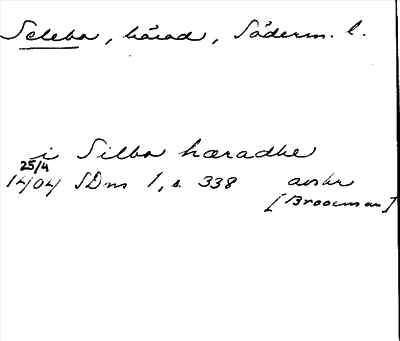 Seleba, härad, Söderm. l.
i Silbo hæradhe
25/4
1404 SDns 1, s. 338 avskr
[Broocman]